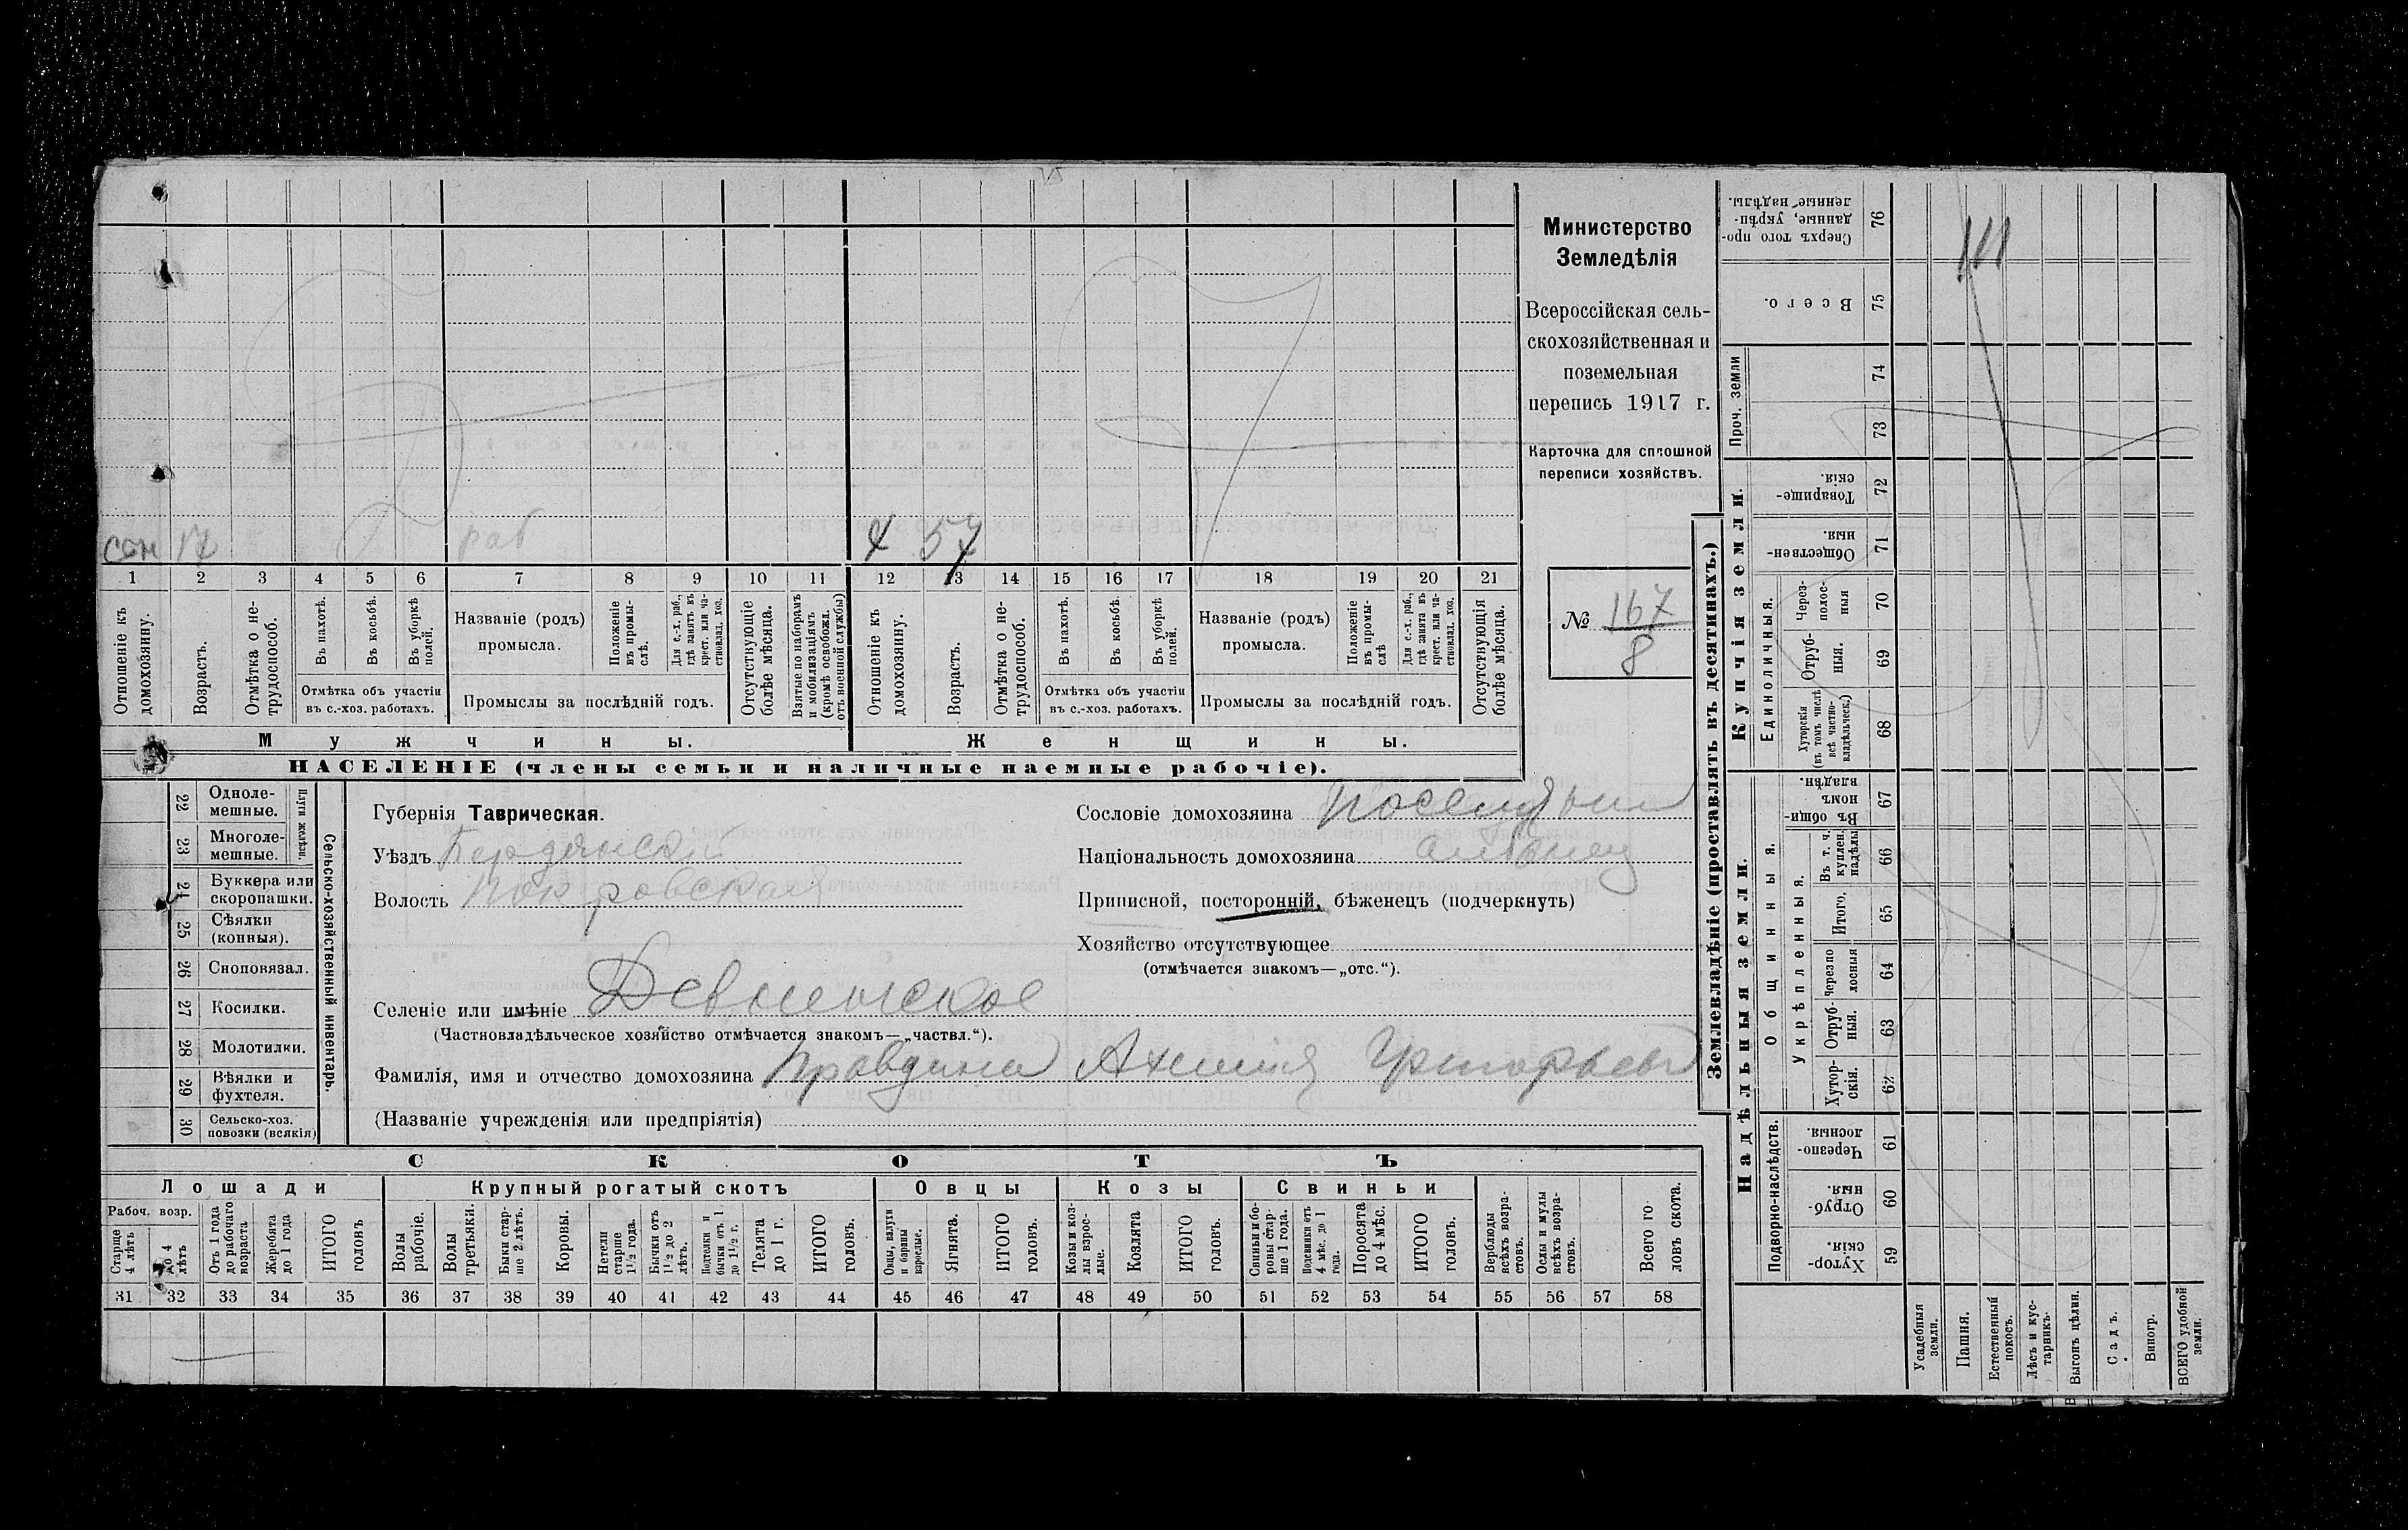 сын 17 раб х 57
1 2 3 4 5 6 7 8 9 10 11 12 13 14 15 16 17 18 19 20 21
Отношеніе къ домохозяину.
Возрастъ.
Отмѣтка о нетрудоспособ.
Въ пахотѣ.
Въ косьбѣ.
Въ уборкѣ полей.
Отмѣтка объ участіи
въ с.-хоз. работахъ.
Названіе (родъ)
промысла.
Положеніе въ промыслѣ.
Для с.-х. раб., гдѣ занятъ въ крест. или частновлад. хоз.
Промыслы за послѣдній годъ.
Отсутствующіе болѣе мѣсяца.
Взятые по наборамъ и мобилизаціямъ (кромѣ освобожд. отъ военной службы)
Отношеніе къ домохозяину.
Возрастъ.
Отмѣтка о нетрудоспособ.
Въ пахотѣ.
Въ косьбѣ.
Въ уборкѣ полей.
Отмѣтка объ участіи
въ с.-хоз. работахъ.
Названіе (родъ)
промысла.
Положеніе въ промыслѣ
Для с.-х. раб., гдѣ занята въ крест. или частновлад. хоз.
Промыслы за послѣдній годъ.
Отсутствующія болѣе мѣсяца.
Мужчины. Женщины.
НАСЕЛЕНІЕ (члены семьи и наличные наемные рабочіе).
Министерство
Земледѣлія
Всероссійская сель-
скохозяйственная и
поземельная
перепись 1917 г.
Карточка для сплошной
переписи хозяйствъ.
№ 167
8
22 Одноле-
мешные.
23 Многоле-
мешные.
Плуги желѣзн.
24 Буккера или
скоропашки.
25 Сѣялки
(конныя).
26 Сноповязал.
27 Косилки.
28 Молотилки.
29 Вѣялки и
фухтеля.
30 Сельско-хоз.
повозки (всякія)
Сельско-хозяйственный инвентарь.
Губернія Таврическая.
Уѣздъ Бердянскій
Волость Покровская
Селеніе или имѣніе
(Частновладѣльческое хозяйство отмѣчается знакомъ—„частвл.“).
Фамилія, имя и отчество домохозяина Правдина
(Названіе учрежденія или предпріятія)
Сословіе домохозяина
Національность домохозяина
Приписной, посторонній, бѣженецъ (подчеркнуть)
Хозяйство отсутствующее
(отмѣчается знакомъ—„отс.“).
СКОТЪ
Лошади Крупный рогатый скотъ Овцы Козы Свиньи
Рабоч. возр.
Старше 4 лѣтъ
До 4 лѣтъ
Отъ 1 года до рабочаго возраста
Жеребята до 1 года
ИТОГО головъ
Волы рабочіе.
Волы третьяки.
Быки старше 2 лѣтъ.
Коровы.
Нетели старше 1½ года.
Бычки отъ 1½ до 2 лѣтъ.
Подтелки и бычки отъ 1 до 1½ г.
Телята до 1 г.
ИТОГО головъ.
Овцы, валухи и бараны взрослые.
Ягнята.
ИТОГО головъ.
Козы и козлы взрослые.
Козлята
ИТОГО головъ.
Свиньи и боровы старше 1 года.
Подсвинки отъ 4 мѣс. до 1 года.
Поросята до 4 мѣс.
ИТОГО головъ.
Верблюды всѣхъ возрастовъ.
Ослы и мулы всѣхъ возрастовъ.
Всего головъ скота.
31 32 33 34 35 36 37 38 39 40 41 42 43 44 45 46 47 48 49 50 51 52 53 54 55 56 57 58
Землевладѣніе (проставлять въ десятинахъ.)
Надѣльныя земли. Купчія земли.
Проч. земли
Подворно-наслѣдств.
Общинныя.
Укрѣпленныя.
Единоличныя.
Сверхъ того проданные, укрѣпленные надѣлы. 76
Всего. 75
74
73
Товарищескія. 72
Общественныя. 71
Черезполосныя 70
Отрубныя. 69
Хуторскія (въ томъ числѣ всѣ частновладѣльческ.) 68
Въ общинномъ владѣн. 67
Въ т. ч. куплен. надѣлы 66
Итого. 65
Черезполосныя 64
Отрубныя. 63
Хуторскія. 62
Черезполосныя. 61
Отрубныя. 60
Хуторскія. 59
Усадебныя земли.
Пашня.
Естественный покосъ.
Лѣсъ и кустарникъ.
Выгонъ цѣлин.
Садъ.
Виногр.
ВСЕГО удобной земли.